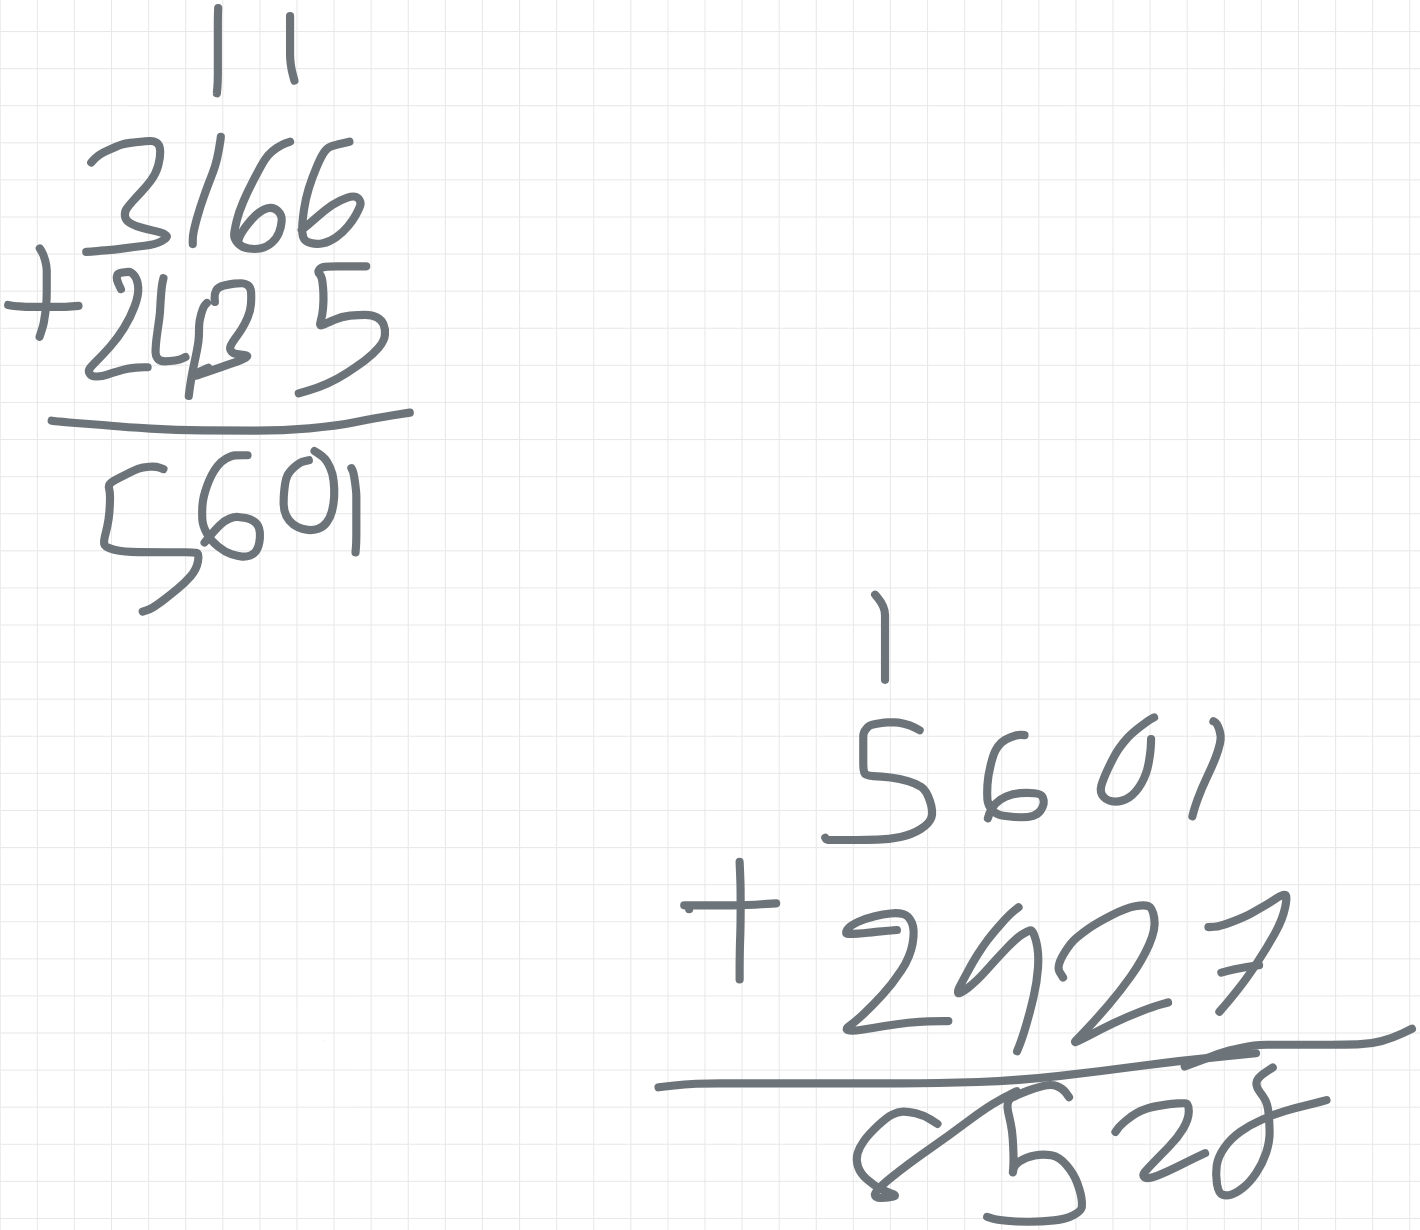 1 1
3166
+ 2435
5601
1
5601
+ 2927
8528